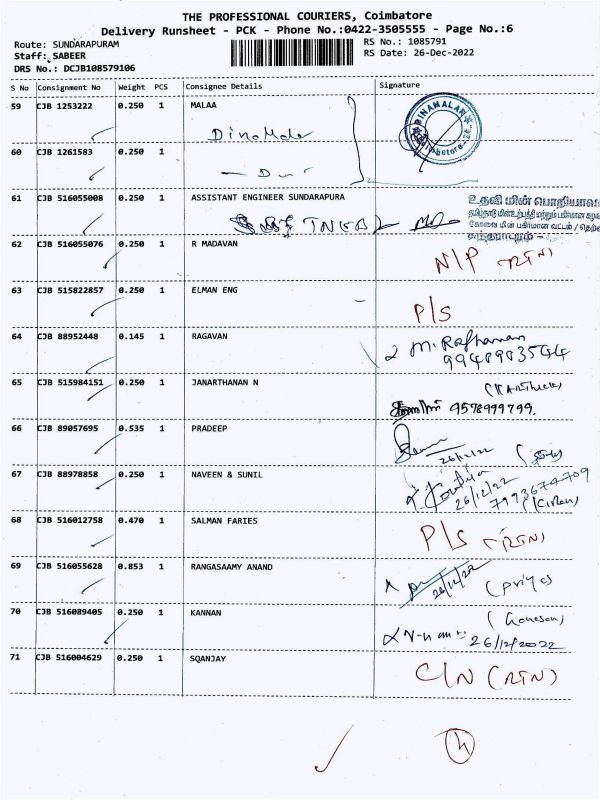 THE PROFESSIONAL COURIERS, Coimbatore
Delivery Runsheet - PCK - Phone No.:0422-3505555 - Page No.:6
Route: SUNDARAPURAM
RS No.: 1085791
Staff: SABEER
RS Date: 26-Dec-2022
DRS No.: DCJB108579106
S No Consignment No Weight PCS Consignee Details Signature
59 CJB 1253222 0.250 1 MALAA
DINAMALAR
60 CJB 1261583 0.250 1
61 CJB 516055008 0.250 1 ASSISTANT ENGINEER SUNDARAPURA
TNEB
உதவி மின் பொறியாளர்
62 CJB 516055076 0.250 1 R MADAVAN
N/P (RTN)
63 CJB 515822857 0.250 1 ELMAN ENG
P/S
64 CJB 88952448 0.145 1 RAGAVAN
65 CJB 515984151 0.250 1 JANARTHANAN N
9578999799.
66 CJB 89057695 0.535 1 PRADEEP
26/12/22
67 CJB 88978858 0.250 1 NAVEEN & SUNIL
26/12/22
7993674709
68 CJB 516012758 0.470 1 SALMAN FARIES
P/S (RTN)
69 CJB 516055628 0.853 1 RANGASAAMY ANAND
26/12/22 (Priya)
70 CJB 516089405 0.250 1 KANNAN
26/12/2022
71 CJB 516004629 0.250 1 SQANJAY
C/N (RTN)